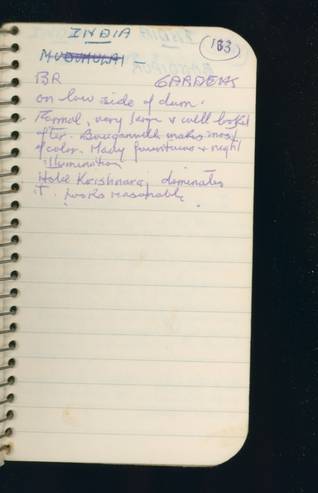 INDIA
133
MUDUMULAI -
BR GARDENS
on low side of dam.
Formal, very large & well looked
after. Bouganvilla makes most
of color. Many fountains & night
illumination
Hotel Krishnaraj dominates
it.